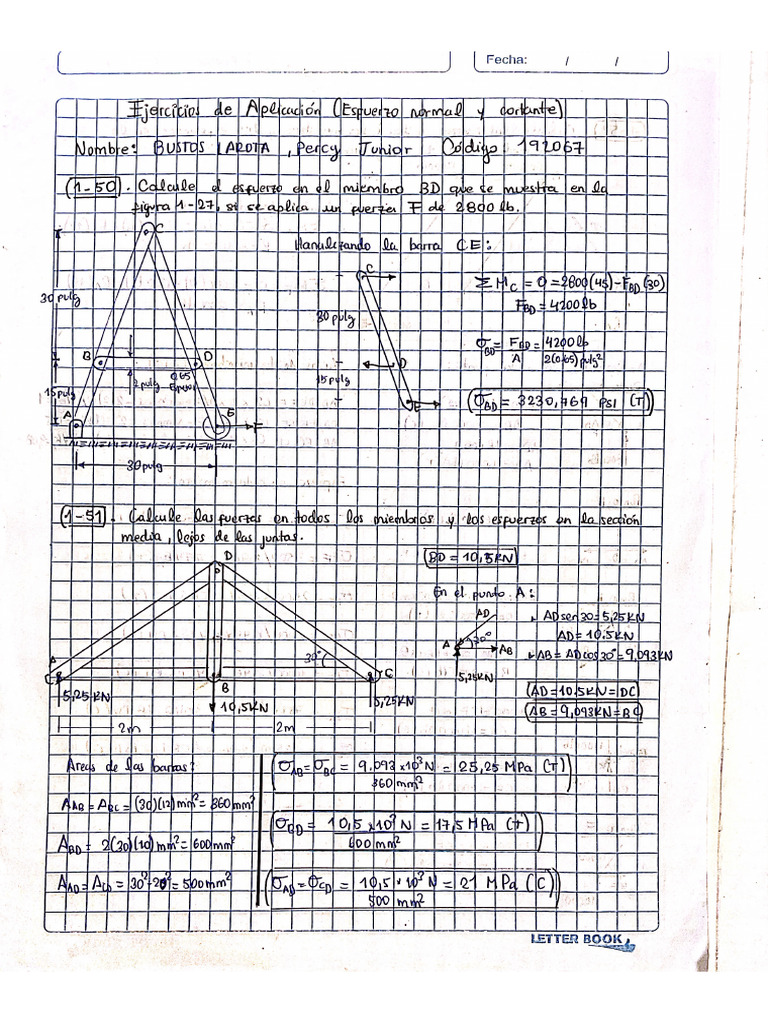 Fecha: / /
Ejercicios de Aplicación (Esfuerzo normal y cortante)
Nombre: BUSTOS LAROTA, Percy Junior Código: 192067
(1-50). Calcule el esfuerzo en el miembro BD que se muestra en la
figura 1-27, si se aplica un fuerza F de 2800 lb.
C
30 pulg
B
D
2 pulg
0,65
15 pulg
A
E
F
30 pulg
Hanalizando la barra CE:
C
30 pulg
D
15 pulg
E
ΣMc = 0 = 2800(45) - FBD(30)
FBD = 4200 lb
σBD = FBD/A = 4200 lb/2(0,65) pulg²
σBD = 3230,769 PSI (T)
(1-51). Calcule las fuerzas en todos los miembros y los esfuerzos en la sección
media, lejos de las juntas.
D
A
30°
C
B
5,25 KN
10,5KN
5,25KN
2m
2m
BD = 10,5KN
En el punto A:
AD
A
30°
AB
5,25KN
ADsen30 = 5,25KN
AD = 10.5KN
AB = ADcos30° = 9,093KN
AD = 10.5KN = DC
AB = 9,093KN = BC
Areas de las barras:
AAB = ABC = (30)(12)mm² = 360mm²
ABD = 2(30)(10)mm² = 600mm²
AAD = ACD = 30² - 20² = 500mm²
σAB = σBC = 9.093 x10³ N/360 mm² = 25,25 MPa (T)
σBD = 10,5 x10³ N/600 mm² = 17,5 MPa (T)
σAD = σCD = 10,5 x 10³ N/500 mm² = 21 MPa (C)
LETTER BOOK